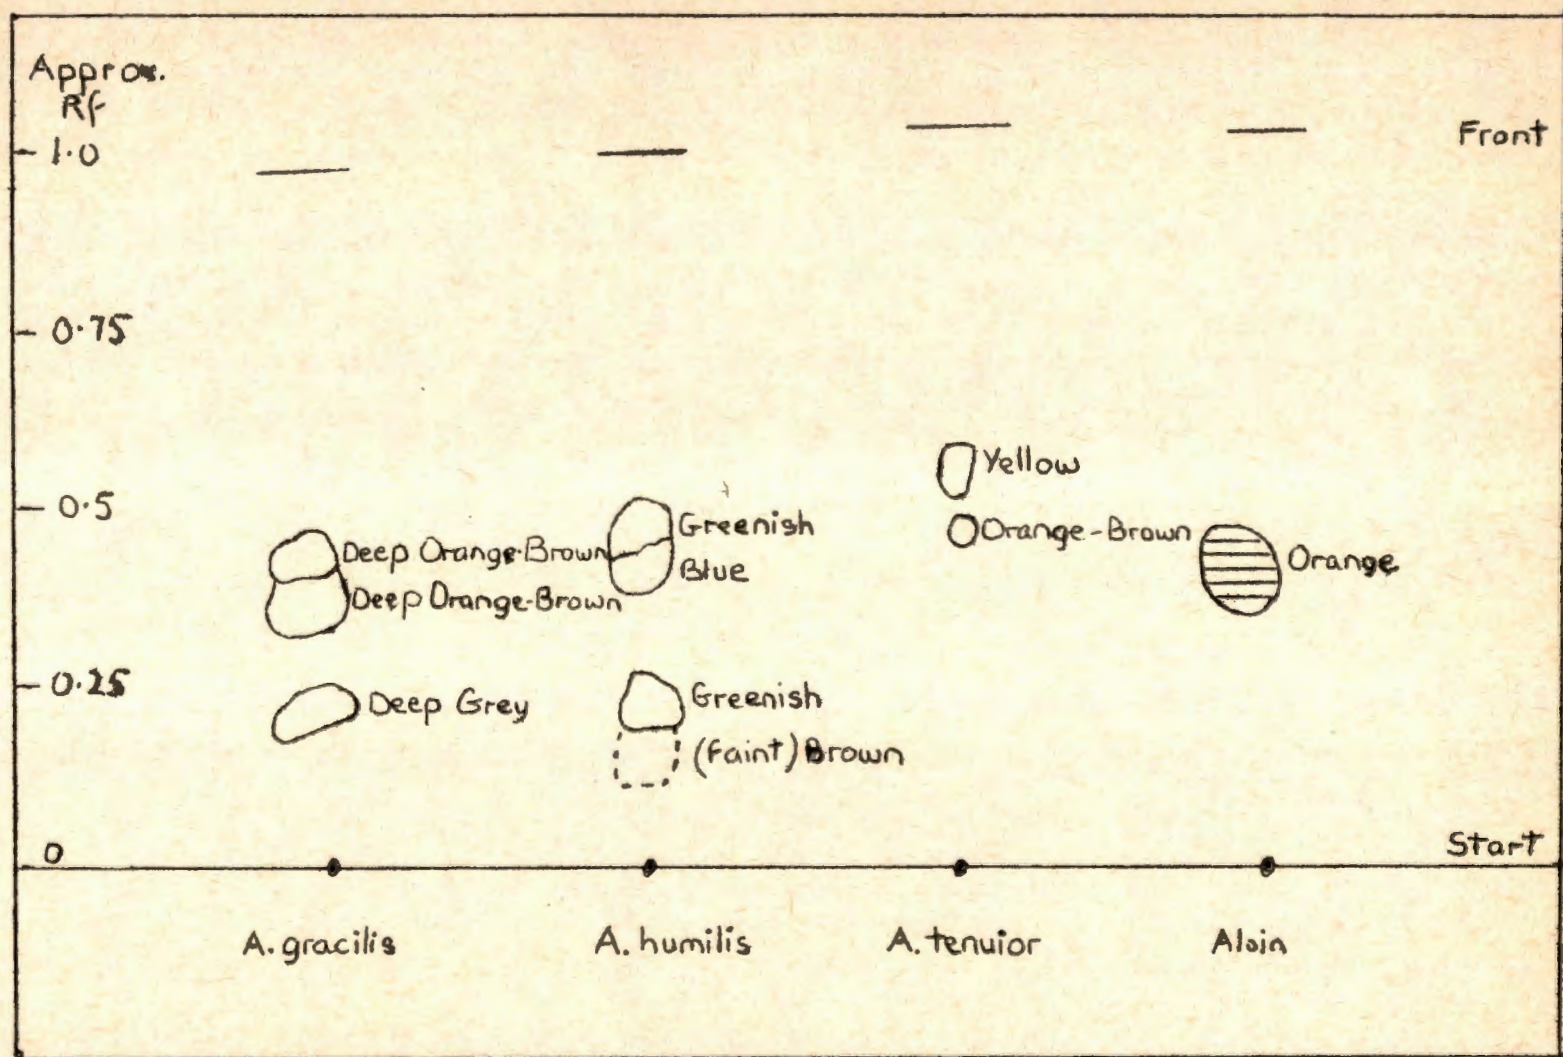 Approx.
Rf
1.0
Front
0.75
Yellow
0.5
Greenish
Orange-Brown
Deep Orange-Brown
Blue
Orange
Deep Orange-Brown
0.25
Deep Grey
Greenish
(Faint) Brown
0
Start
A. gracilis
A. humilis
A. tenuior
Aloin